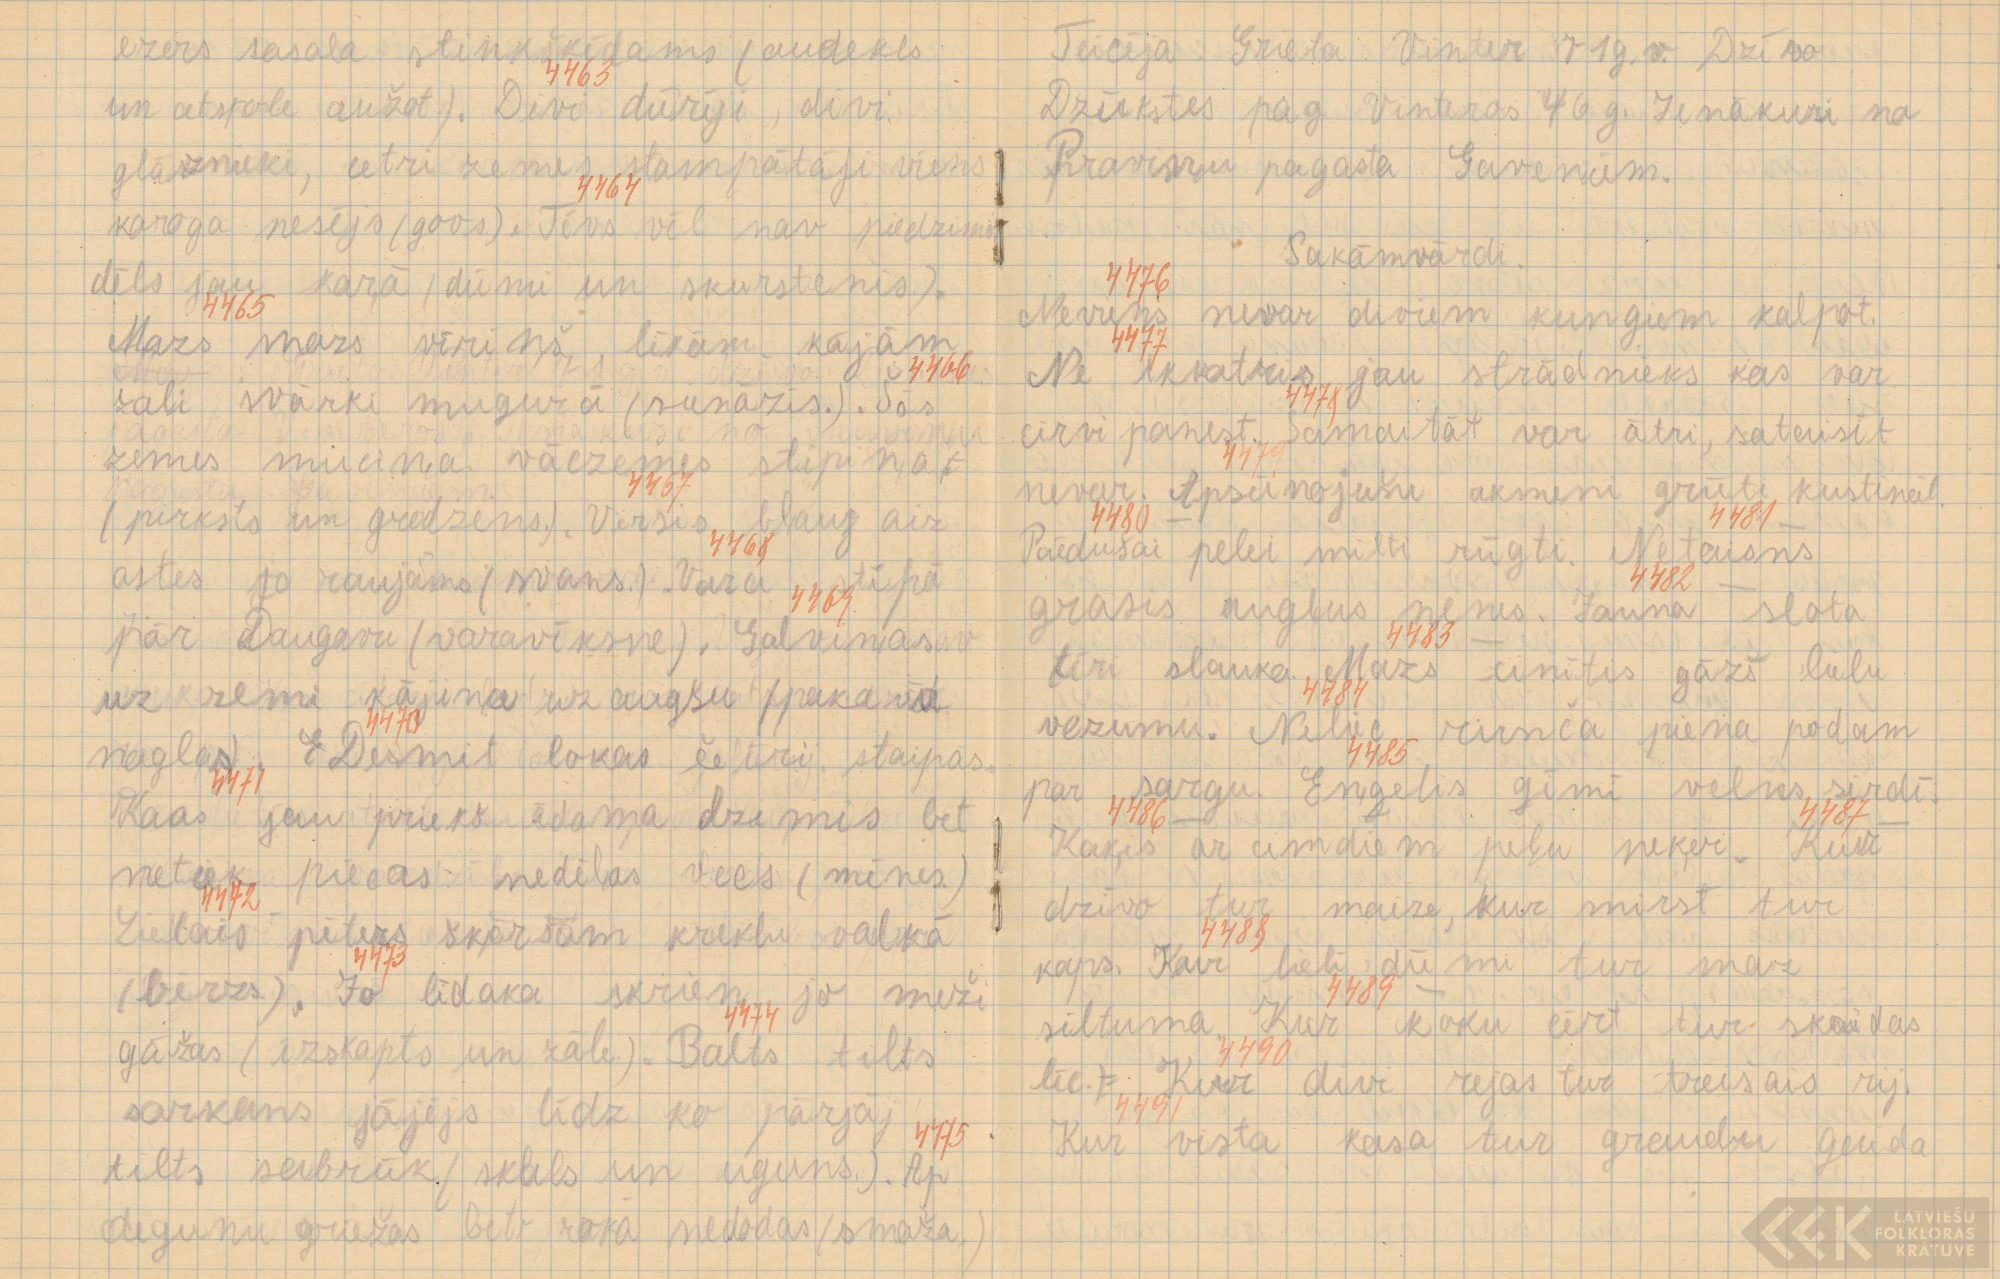 ezers sasala stinkšķīdams (audekls
4463
un atspole aužot). Divi dūrēji, divi
glāznieki, cetri zemes stampātāji viens
4464
karoga nesējs (govs). Tēvs vēl nav piedzimis
dēls jau karā (dūmi un skurstenis).
4465
Mazs mazs vīriņš, līkām kājām
4466
zali svārki mugurā (sunāzis.). Šās
zemes muciņa vāczemes stīpiņa
4467
(pirksts un gredzens). Vērsis blauj aiz
4468
astes to raujams (svans.). Vara stīpa
4469
pār Daugavu (varavīksne). Galviņas
uz zemi kājiņa uz augšu (pakava
4470
naglas). Desmit lokas četrij staipas.
4471
Kaas jau prieks ādama dzemis bet
netiek piecas nedēlas vecs (mēnes)
4472
Lielais pēters šķoršām kreklu valkā
4473
(bērzs). Jo līdaka skrien jo meži
4474
gāžas (izskapts un zāle). Balts tilts
sarkans jājējs līdz ko pārjāj
4475
tilts sabrūk (skals un uguns.). Ap
degunu griežas bet rokā nedodas (smaža.)
Teicēja: Grieta Vinter 71g.v. Dzīvo
Dzūkstes pag. Vinteros 46 g. Ienākusi no
Praviņu pagasta Gaveņiem.
Sakāmvārdi.
4476
Neviens nevar diviem kungiem kalpot.
4477
Ne ikkatris jau strādnieks kas var
4478
cirvi panest. Samaitāt var ātri, sataisīt
4479
nevar. Apsūnojušu akmeni grūti kustināt.
4480 4481
Paēdušai pelei milti rūgti. Netaisns
4482
grasis augļus nenes. Jauna slota
4483
tīri slauka. Mazs cinītis gāzš lielu
4484
vezumu. Neliec runča piena podam
4485
par sargu. Eņģelis ģīmī velns sirdī.
4486 4487
Kaķis ar cimdiem peļu neķer. Kur
dzīvo tur maize, kur mirst tur
4488
kaps. Kur lieli dūmi tur maz
4489
siltuma. Kur koku cērt tur skaidas
4490
lēc. Kur divi rejas tur trešais rij.
4491
Kur vista kasa tur graudu gaida
LATVIEŠU
FOLKLORAS
KRĀTUVE